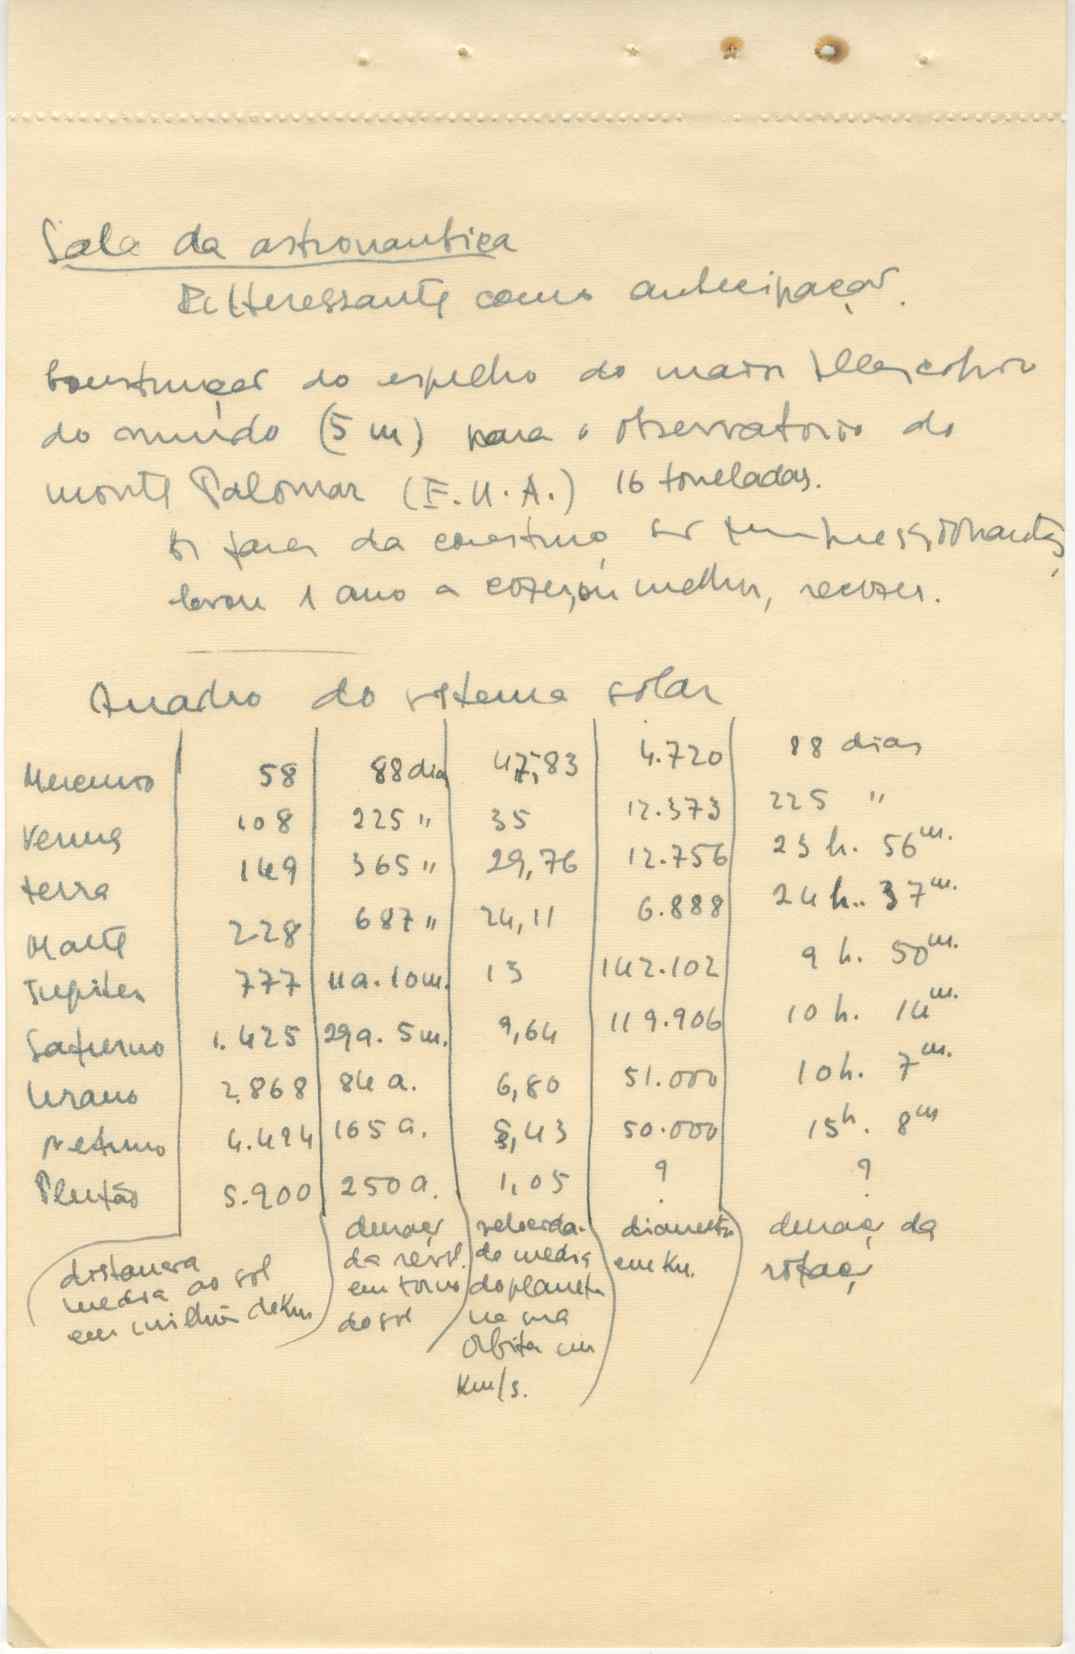 Sala da astronautica
Interessante como antecipação.
Construção do espelho do maior telescopio
do mundo (5 m) para o observatorio do
monte Palomar (E.U.A.) 16 toneladas.
As fases da construção são impressionantes,
levou 1 ano a cozer, ou melhor, recozer.
Quadro do sistema solar
Mercurio 58 88 dia 47,83 4.720 88 dias
Venus 108 225 " 35 12.373 225 "
terra 149 365 " 29,76 12.756 23 h. 56 m.
Marte 228 687 " 24,11 6.888 24 h. 37 m.
Jupiter 777 11 a. 10 m. 13 142.102 9 h. 50 m.
Saturno 1.425 29 a. 5 m. 9,64 119.906 10 h. 14 m.
Urano 2.868 84 a. 6,80 51.000 10 h. 7 m.
Netuno 4.494 165 a. 5,43 50.000 15 h. 8 m
Plutão 5.900 250 a. 1,05 ? ?
distancia
media ao sol
em milhões de Km
duração
da revol.
em torno
do sol
velocida-
de media
do planeta
na sua
orbita em
Km/s.
diametro
em Km.
duração da
rotação